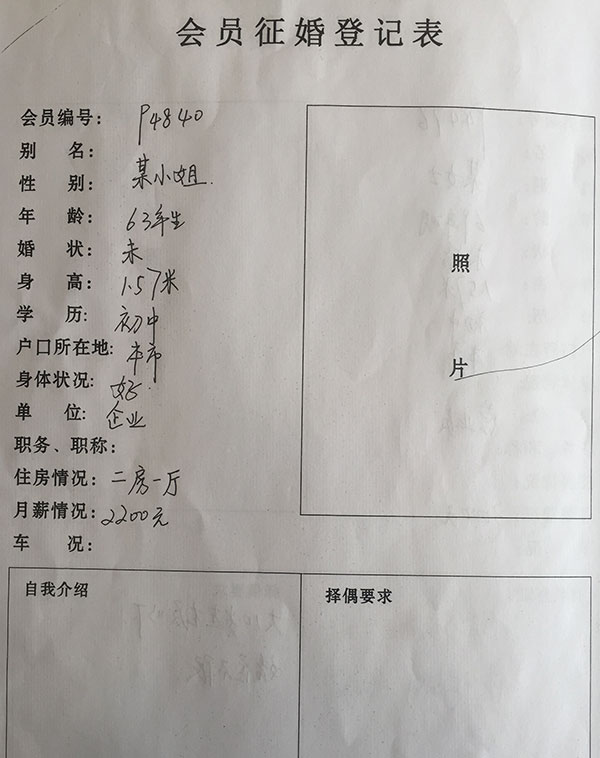 会员征婚登记表
会员编号：P4840
别 名：
性 别：某小姐.
年 龄：63年生
婚 状：未
身 高：1.57米
学 历：初中
户口所在地：本市
身体状况：好.
单 位：企业
职务、职称：
住房情况：二房一厅
月薪情况：2200元
车 况：
照
片
自我介绍
择偶要求